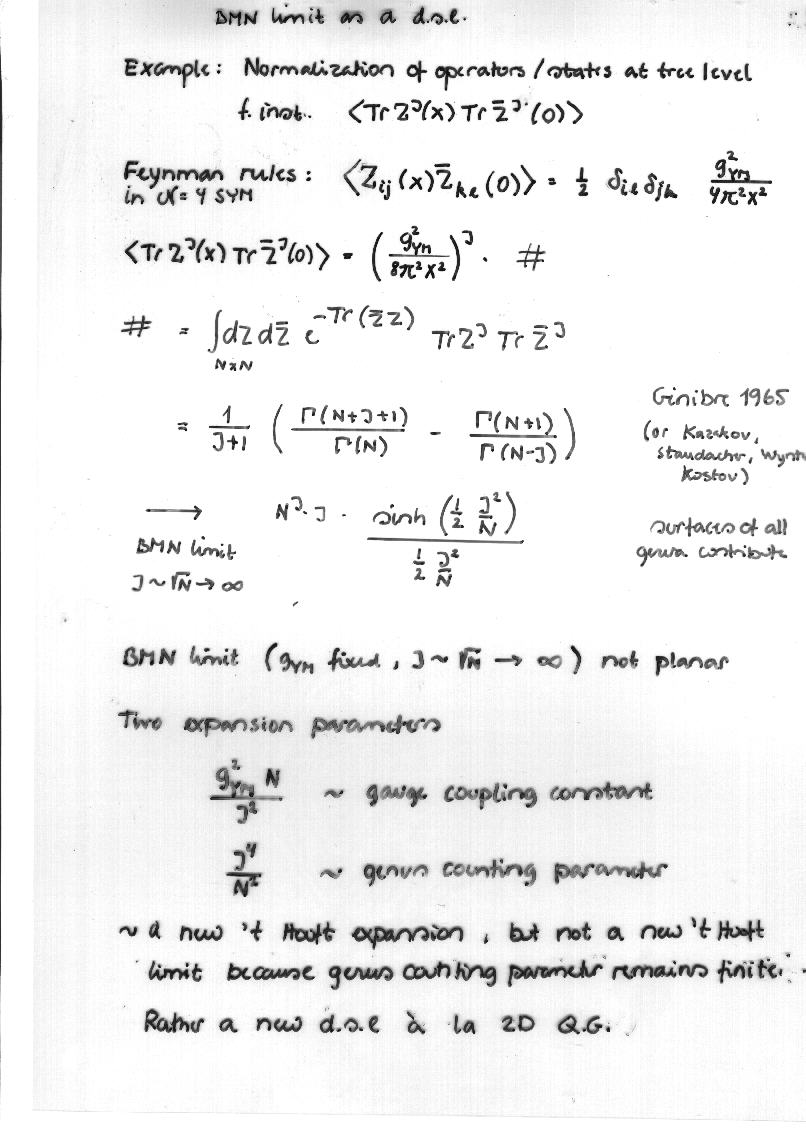 BMN limit as a d.s.l.
Example: Normalization of operators/states at tree level
f. inst. ⟨Tr Z^J(x) Tr Z̄^J(0)⟩
Feynman rules: ⟨Z_ij(x) Z̄_kl(0)⟩ = 1/2 δ_il δ_jk g²_YM/4π²x²
in N=4 SYM
⟨Tr Z^J(x) Tr Z̄^J(0)⟩ = (g²_YM/8π²x²)^J · #
# = ∫dZ dZ̄ e^{-Tr(Z̄Z)} Tr Z^J Tr Z̄^J
N×N
= 1/(J+1) (Γ(N+J+1)/Γ(N) - Γ(N+1)/Γ(N-J))
Ginibre 1965
(or Kazakov,
Staudacher, Wynter
Kostov)
⟶ N^J · J · sinh(1/2 J²/N) / (1/2 J²/N)
BMN limit
J ~ √N → ∞
surfaces of all
genera contribute
BMN limit (g_YM fixed, J ~ √N → ∞) not planar
Two expansion parameters
g²_YM N/J² ~ gauge coupling constant
J⁴/N² ~ genus counting parameter
~ a new 't Hooft expansion, but not a new 't Hooft
limit because genus counting parameter remains finite.
Rather a new d.s.l à la 2D Q.G.